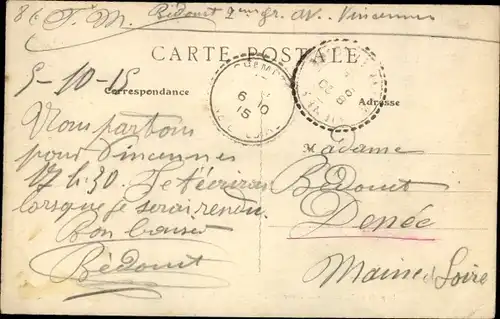 Bédouit 2ème gr. av. Vincennes
CARTE POSTALE
5-10-15
Correspondance
Adresse
6 10
15
Vous partons
pour Vincennes
17 h. 30. Je t'écrirai
lorsque je serai rendu.
Bon baiser
Bédouit
Madame
Bédouit
Denée
Maine et Loire